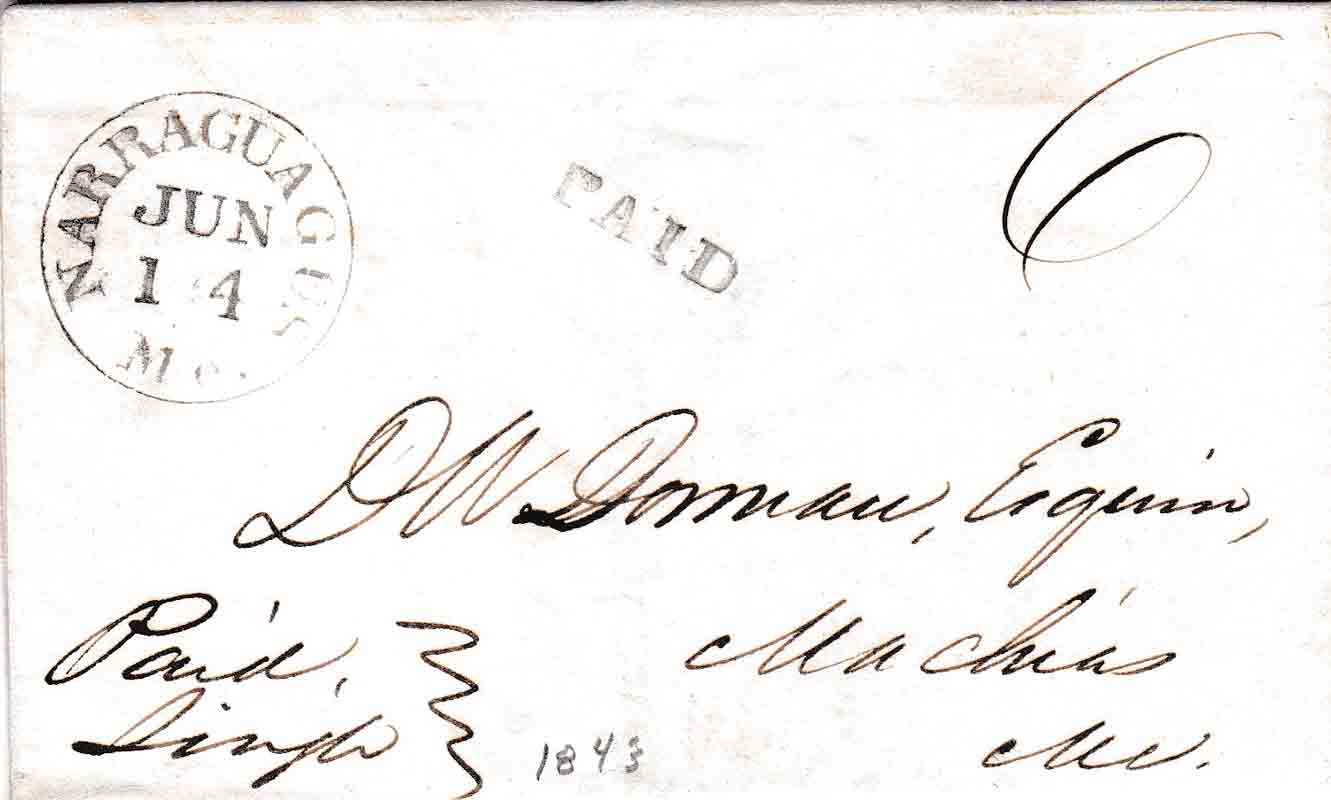 NARRAGUAGUS
JUN
14
Me.
PAID
6
D W Dorman, Esquire,
Machias
Me.
Paid,
Single
1843